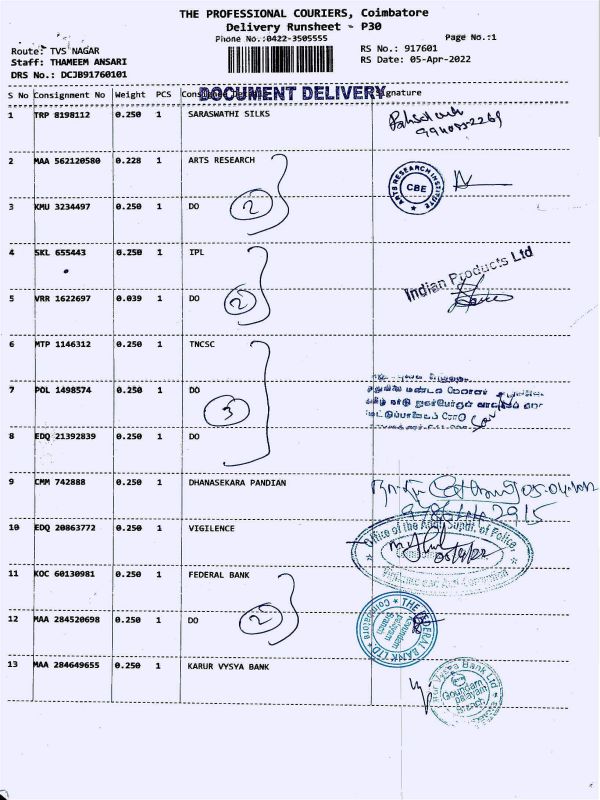 THE PROFESSIONAL COURIERS, Coimbatore
Delivery Runsheet - P30
Phone No.:0422-3505555
Page No.:1
Route: TVS NAGAR
Staff: THAMEEM ANSARI
DRS No.: DCJB91760101
RS No.: 917601
RS Date: 05-Apr-2022
S No Consignment No Weight PCS
DOCUMENT DELIVERY
1 TRP 8198112 0.250 1 SARASWATHI SILKS
2 MAA 562120580 0.228 1 ARTS RESEARCH
ARTS RESEARCH INSTITUTE
CBE
3 KMU 3234497 0.250 1 DO
2
4 SKL 655443 0.250 1 IPL
Indian Products Ltd
5 VRR 1622697 0.039 1 DO
2
6 MTP 1146312 0.250 1 TNCSC
7 POL 1498574 0.250 1 DO
3
8 EDQ 21392839 0.250 1 DO
9 CMM 742888 0.250 1 DHANASEKARA PANDIAN
10 EDQ 20863772 0.250 1 VIGILENCE
Office of the Addl. Supdt. of Police,
11 KOC 60130981 0.250 1 FEDERAL BANK
12 MAA 284520698 0.250 1 DO
2
THE FEDERAL BANK LTD.
Coimbatore
Goundam
palayam
Branch
13 MAA 284649655 0.250 1 KARUR VYSYA BANK
Vysya Bank Ltd
Goundam
palayam
Branch